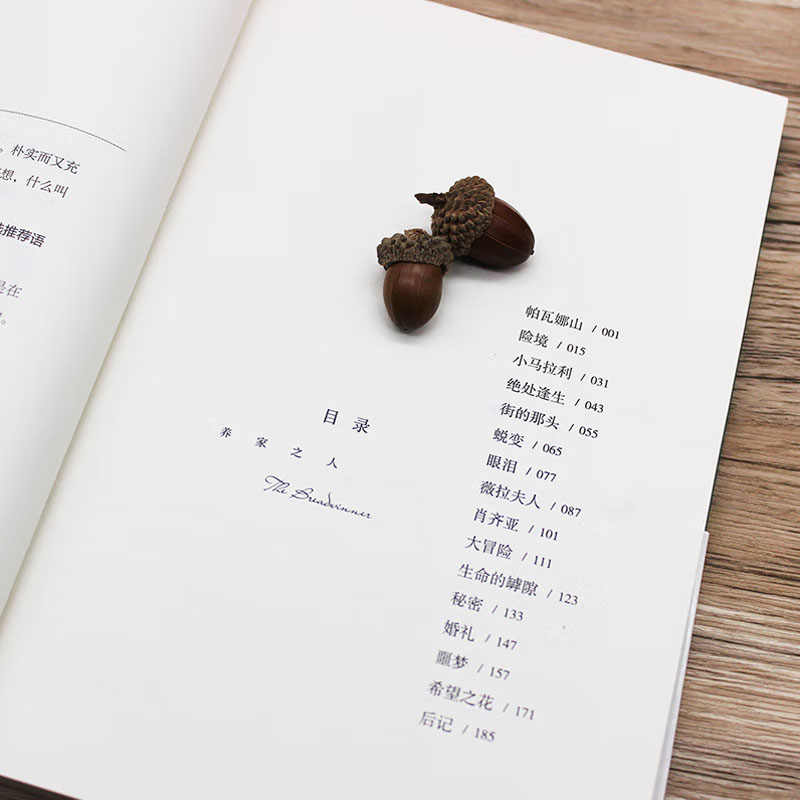 。朴实而又充
想，什么叫
推荐语
是在
。
目录
养家之人
The Breadwinner
帕瓦娜山 / 001
险境 / 015
小马拉利 / 031
绝处逢生 / 043
街的那头 / 055
蜕变 / 065
眼泪 / 077
薇拉夫人 / 087
肖齐亚 / 101
大冒险 / 111
生命的罅隙 / 123
秘密 / 133
婚礼 / 147
噩梦 / 157
希望之花 / 171
后记 / 185